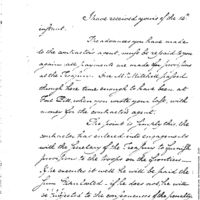 I have received yours of the 14th
instant.
The advances you have made
to the contractors agent, must be repaid to you
again all payments are made for provisions
at the Treasury. One Mr. Mitchell passed
though here time enough to have been at
Fort Pitt, when you wrote your last, with
money for the contractors agent.
The point is simply this, the
contractor has entered into engagements
with the Secretary of the Treasury to furnish
provisions to the troops on the frontiers—
If he executes it well he will be paid the
sum stipulated — if he does not he will
be subjected to the consequences of the penalty